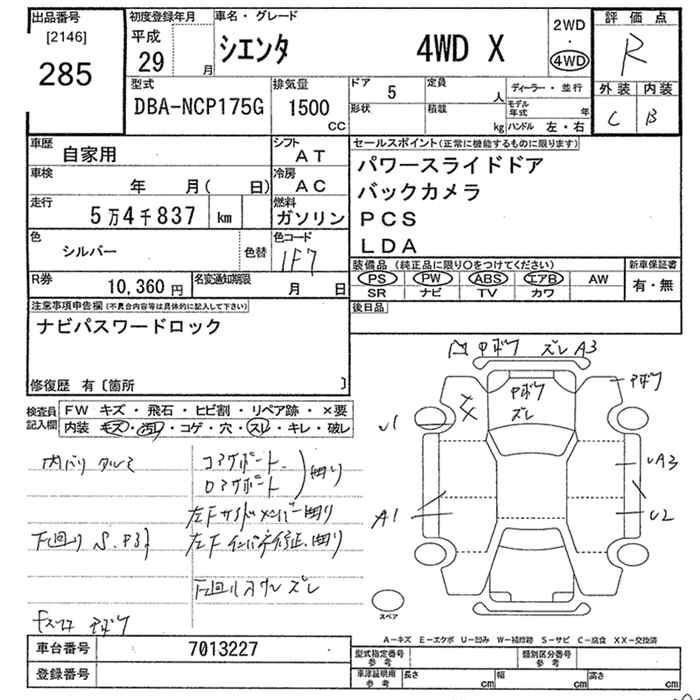 出品番号 初度登録年月 車名・グレード 評価点
[2146] 平成 シエンタ 4WD X 2WD・4WD R
285 29 月
外装 内装
型式 排気量 ドア 5 定員 人 ディーラー・並行
DBA-NCP175G 1500 cc 形状 積載 kg モデル年式 年 C B
ハンドル 左・右
車歴 自家用 シフト AT セールスポイント(正常に機能するものに限ります)
車検 年 月( 日) 冷房 AC パワースライドドア
走行 5万4千837 km 燃料 ガソリン バックカメラ
PCS
色 シルバー 色替 色コード 1F7 LDA
装備品 (純正品に限り○をつけてください) 新車保証書
R券 10,360円 名変通知期限 月 日 PS PW ABS エアB AW 有・無
SR ナビ TV カワ
注意事項申告欄(不具合内容等は具体的に記入して下さい) 後日品
ナビパスワードロック
修復歴 有〔箇所 〕
検査員記入欄 FW キズ・飛石・ヒビ割・リペア跡・×要
内装 キズ・汚レ・コゲ・穴・スレ・キレ・破レ
ズレ A3
ズレ
A3
A1 U2
内バリ タルミ
曲り
下回り S.
曲り
曲り
ズレ
スペア
A-キズ E-エクボ U-凹み W-補修跡 S-サビ C-腐食 XX-交換済
車台番号 7013227 型式指定番号 参考 類別区分番号 参考
登録番号 車庫証明用 参考 長さ cm 幅 cm 高さ cm